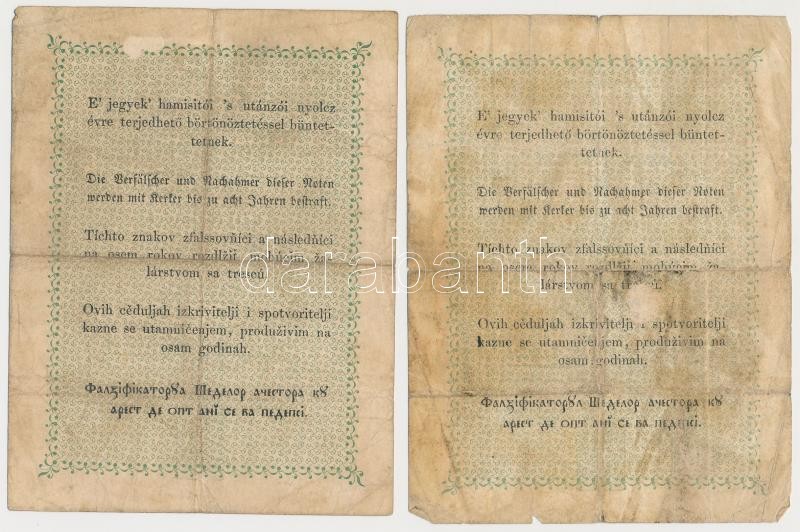 E' jegyek' hamisitói 's utánzói nyolcz
évre terjedhető börtönöztetéssel büntet-
tetnek.
Die Verfälscher und Nachahmer dieser Noten
werden mit Kerker bis zu acht Jahren bestraft.
Tíchto znakov zfalssovňíci a následňíci
na osem rokov rozdlžiť mohúcim ža-
lárstvom sa trescú.
Ovih cěduljah izkrivitelji i spotvoritelji
kazne se utamničenjem, produživim na
osam godinah.
Фалзіфікаторꙋа Шеделор ачестора кꙋ
арест де опт анĭ се ва педепсі.
E' jegyek' hamisitói 's utánzói nyolcz
évre terjedhető börtönöztetéssel büntet-
tetnek.
Die Verfälscher und Nachahmer dieser Noten
werden mit Kerker bis zu acht Jahren bestraft.
Tíchto znakov zfalssovňíci a následňíci
na osem rokov rozdlžiť mohúcim ža-
lárstvom sa
Ovih cěduljah izkrivitelji i spotvoritelji
kazne se utamničenjem, produživim na
osam godinah.
Фалзіфікаторꙋл Шеделор ачестора кꙋ
арест де опт анĭ се ва педепсі.
darabanth